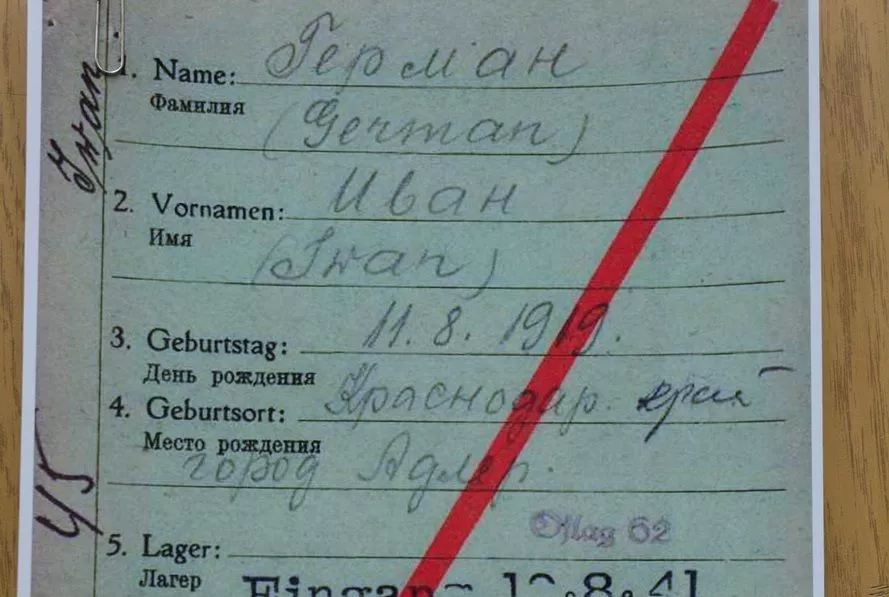 1. Name: Герман
Фамилия
(German)
2. Vornamen: Иван
Имя
(Iwan)
3. Geburtstag: 11. 8. 1919.
День рождения
4. Geburtsort: Краснодар. край
Место рождения
город Адлер.
5. Lager: Oflag 62
Лагер
Eingang .8.41
Iwan
45